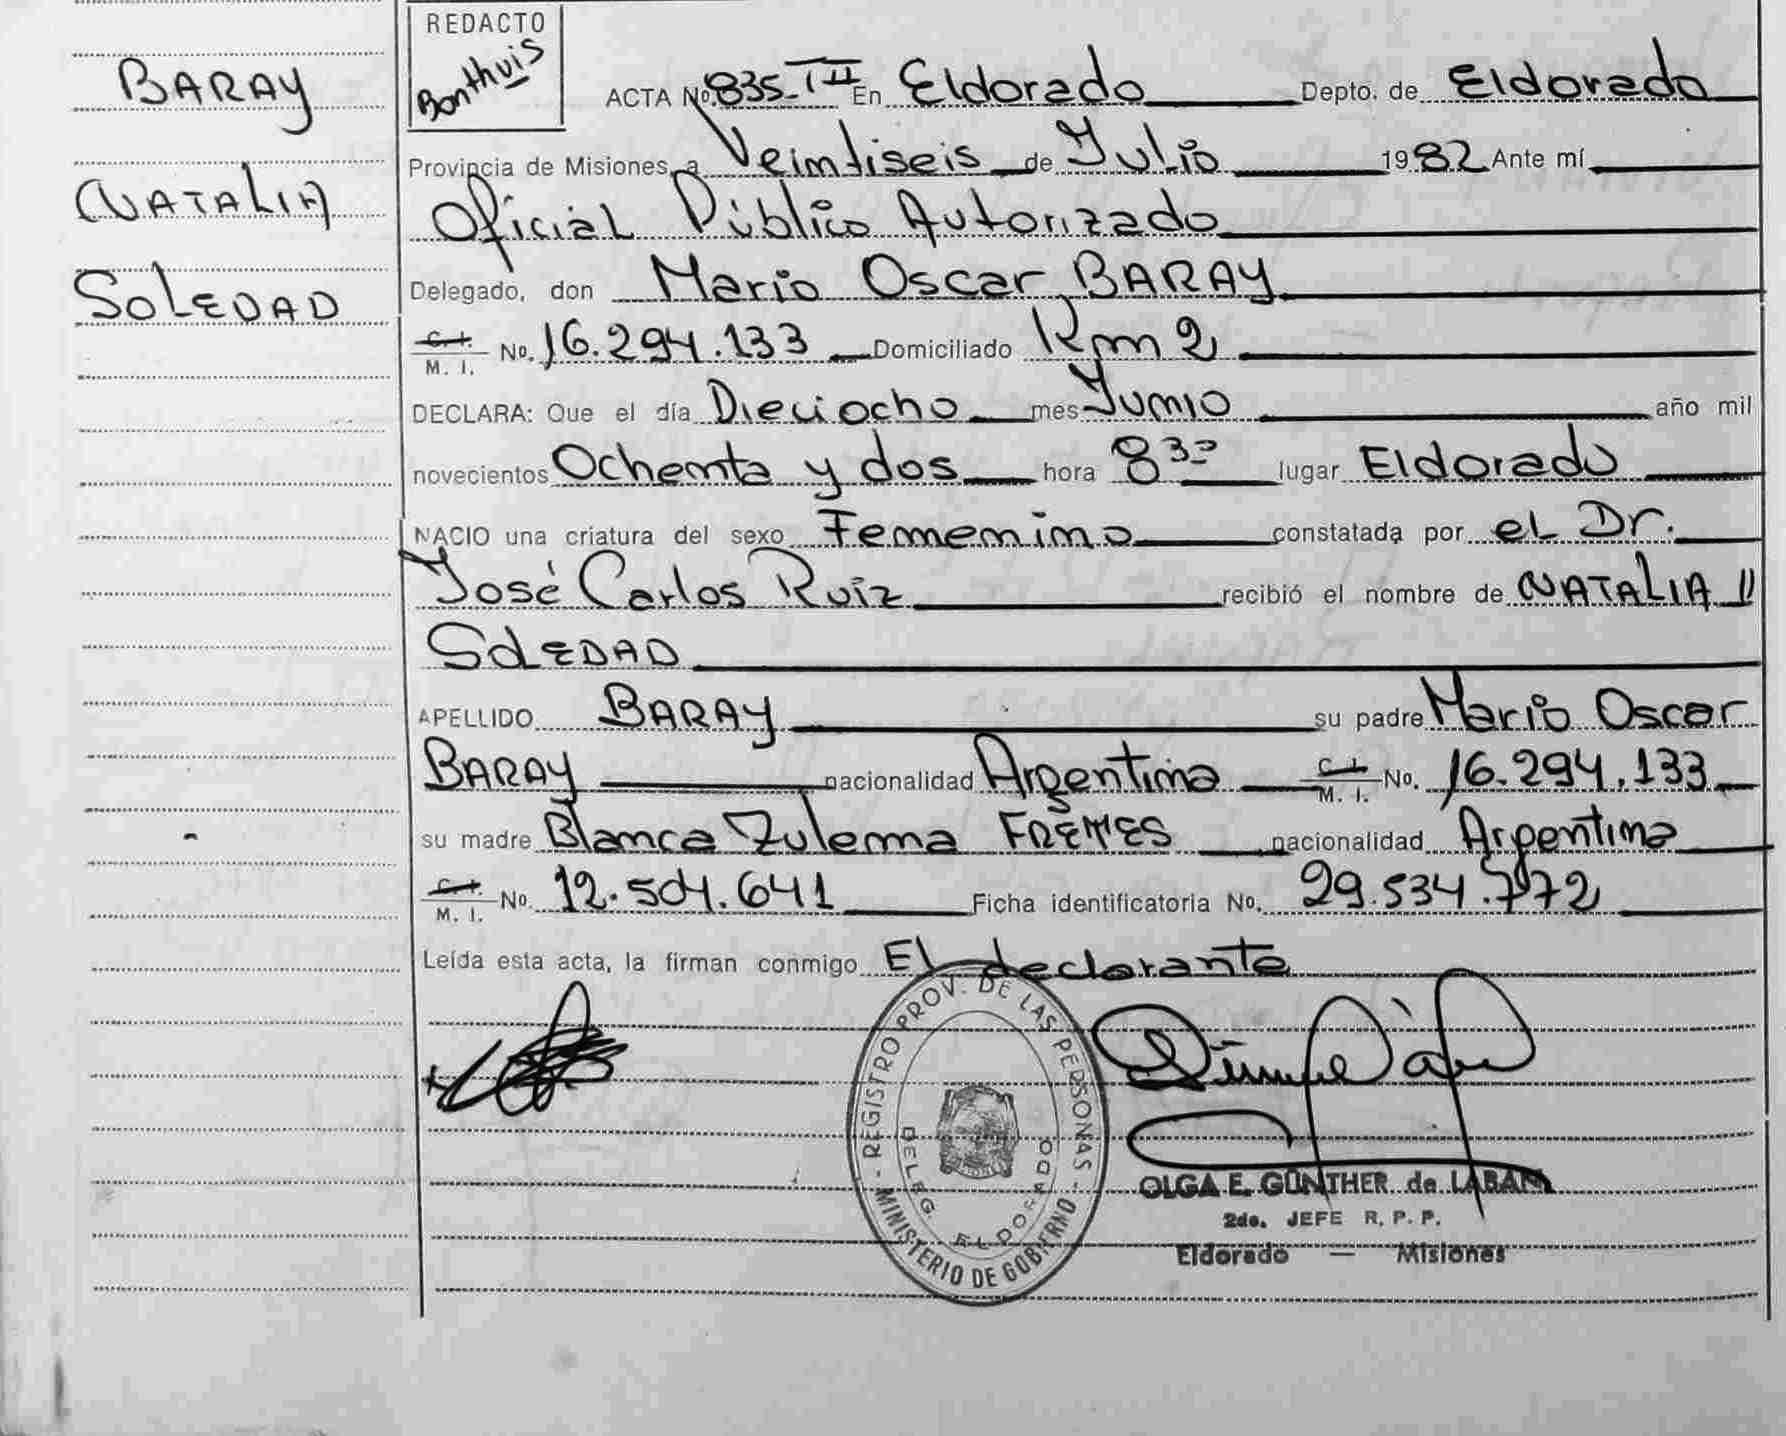 BARAY
NATALIA
SOLEDAD
REDACTO
Bonthuis
ACTA No. 835-TII En Eldorado Depto. de Eldorado
Provincia de Misiones, a Veintiseis de Julio 1982 Ante mí
Oficial Público Autorizado
Delegado, don Mario Oscar BARAY
C. I. M. I. No. 16.294.133 Domiciliado Km 2
DECLARA: Que el día Dieciocho mes Junio año mil
novecientos Ochenta y dos hora 8 30 lugar Eldorado
NACIO una criatura del sexo Femenino constatada por el Dr.
José Carlos Ruiz recibió el nombre de NATALIA //
SOLEDAD
APELLIDO BARAY su padre Mario Oscar
BARAY nacionalidad Argentina C. I. M. I. No. 16.294.133
su madre Blanca Zulema FRETTES nacionalidad Argentina
C. I. M. I. No. 12.504.641 Ficha identificatoria No. 29.534.772
Leída esta acta, la firman conmigo El declarante
- REGISTRO PROV. DE LAS PERSONAS -
MINISTERIO DE GOBIERNO
DELEG. ELDORADO
OLGA E. GÜNTHER de LABAM
2do. JEFE R. P. P.
Eldorado — Misiones